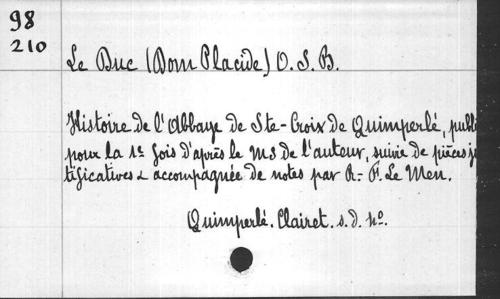 98
210
Le Duc (Dom Placide) O. S. B.
Histoire de l'Abbaye de Ste-Croix de Quimperlé, publi
pour la 1e fois d'après le ms de l'auteur, suivie de pièces ju
tificatives & accompagnée de notes par R.-F. Le Men.
Quimperlé. Clairet. s. d. no.